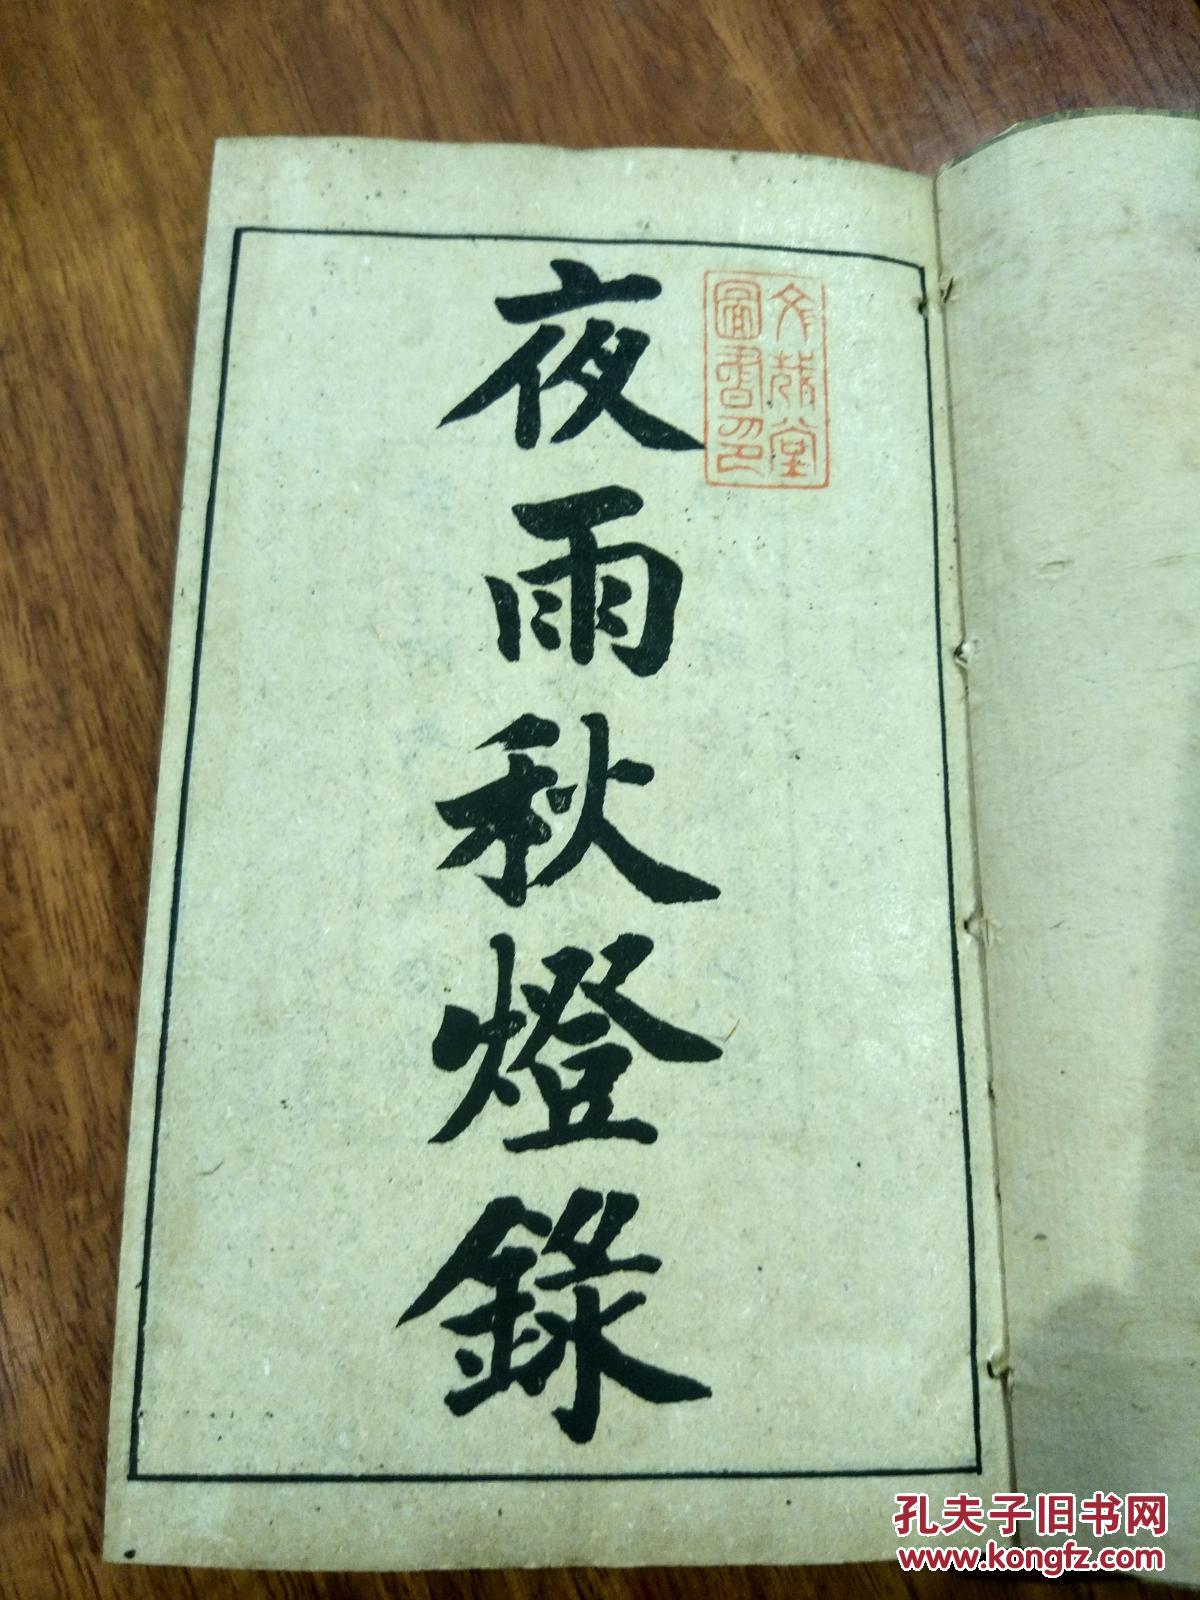 夜雨秋燈錄
孔夫子旧书网
www.kongfz.com